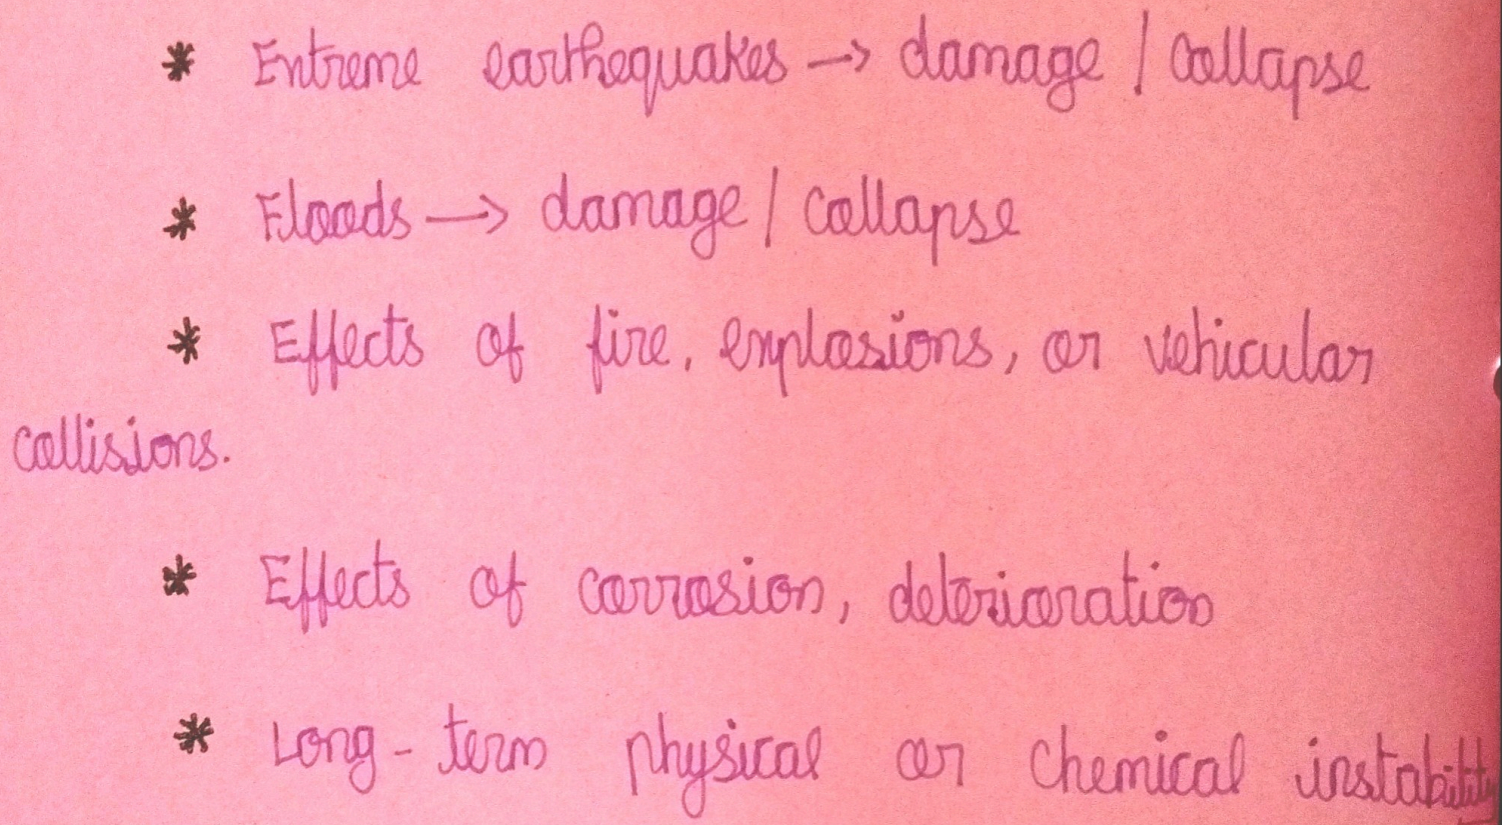 * Extreme earthequakes → damage / collapse
* Floods → damage / collapse
* Effects of fire, explosions, or vehicular
collisions.
* Effects of corrosion, deterioration
* Long-term physical or chemical instability